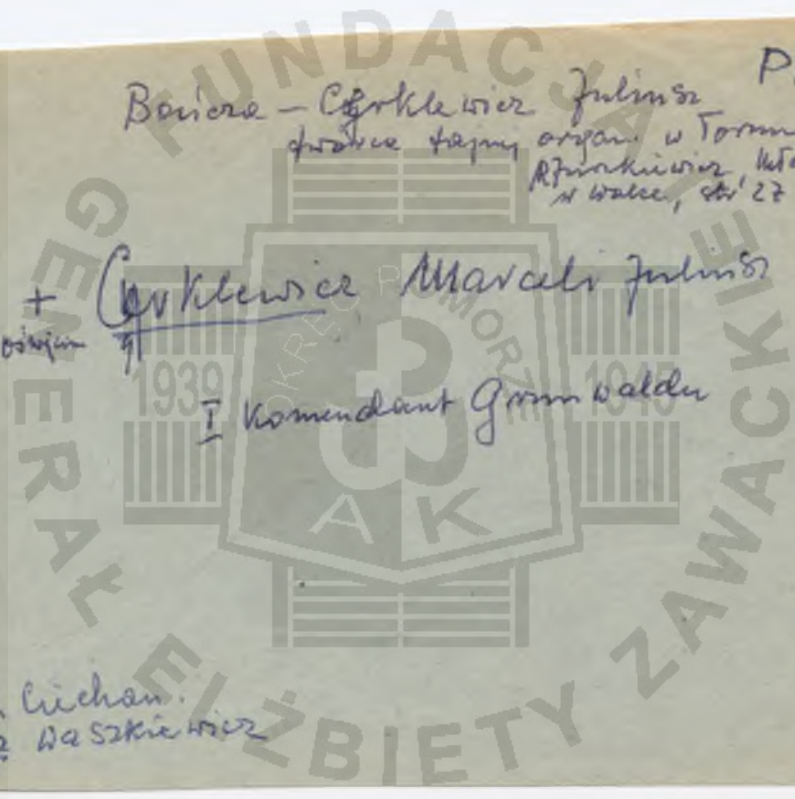 P.
Bończa – Cyrklewicz Juliusz
twórca tajnej organ. w Toruniu
w walce, str 27
+ Cyrklewicz Marceli Juliusz
Oświęcim
I Komendant Grunwaldu
Ciechan.
Waszkiewicz
FUNDACJA
GENERAŁ ELŻBIETY ZAWACKIEJ
OKRĘG POMORZE
1939 1945
A K